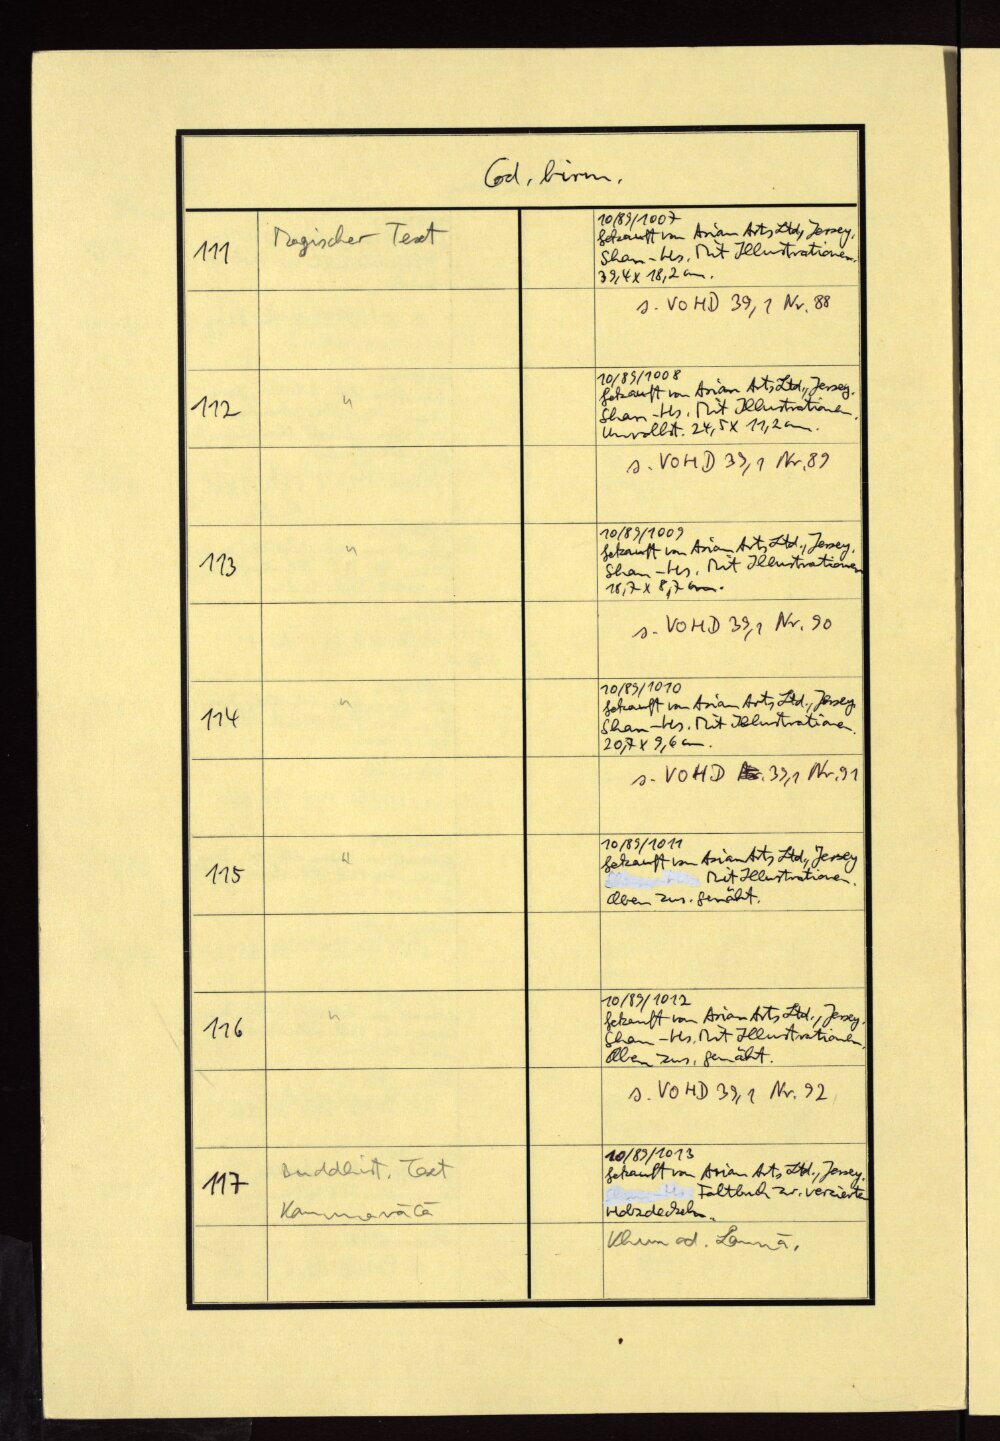 Cod. birm.
111
Magischer Text
10/89/1007
Gekauft von Asian Arts Ltd., Jersey.
Shan-Hs. Mit Illustrationen.
39,4 x 18,2 cm.
s. VOHD 39,1 Nr. 88
112
"
10/89/1008
Gekauft von Asian Arts Ltd., Jersey.
Shan-Hs. Mit Illustrationen.
Unvollst. 24,5 x 11,2 cm.
s. VOHD 39,1 Nr. 89
113
"
10/89/1009
Gekauft von Asian Arts Ltd., Jersey.
Shan-Hs. Mit Illustrationen
18,7 x 8,7 cm.
s. VOHD 39,1 Nr. 90
114
"
10/89/1010
Gekauft von Asian Arts Ltd., Jersey.
Shan-Hs. Mit Illustrationen.
20,7 x 9,6 cm.
s. VOHD 39,1 Nr. 91
115
"
10/89/1011
Gekauft von Asian Arts Ltd., Jersey
Mit Illustrationen.
Oben zus. genäht.
116
"
10/89/1012
Gekauft von Asian Arts Ltd., Jersey.
Shan-Hs. Mit Illustrationen.
Oben zus. genäht.
s. VOHD 39,1 Nr. 92
117
Buddhist. Text
Kammavācā
10/89/1013
Gekauft von Asian Arts Ltd., Jersey.
Faltbuch zw. verzierten
Holzdeckeln.
Khün od. Lannā.